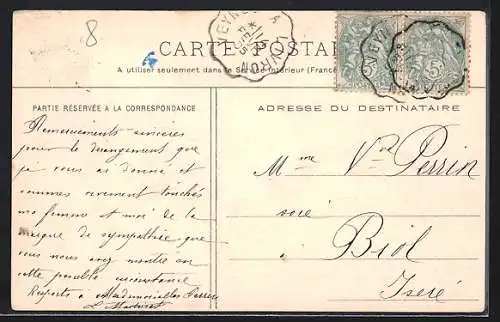 8
CARTE POSTALE
A utiliser seulement dans le Service intérieur (France
PARTIE RÉSERVÉE A LA CORRESPONDANCE
Remerciements sincères
pour le derangement que
je vous ai donné et
sommes vivement touchés
ma femme et moi de la
marque de sympathie que
vous nous avez montré en
cette penible circonstance
Respects à Mademoiselle Perrin
ADRESSE DU DESTINATAIRE
Mme Vve Perrin
Biol
Isère